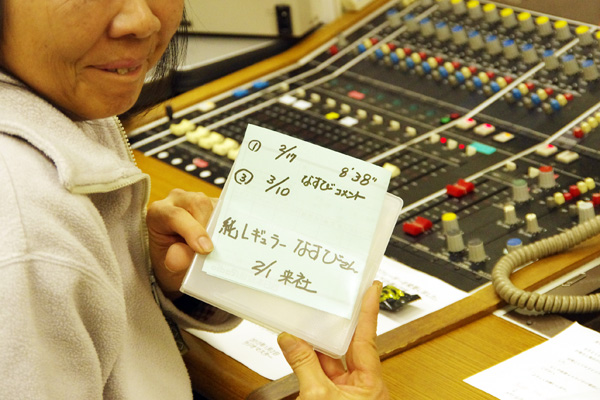 ① 2/17 8'38"
③ 3/10 なすびコメント
純レギュラー なすびさん
2/1 来社